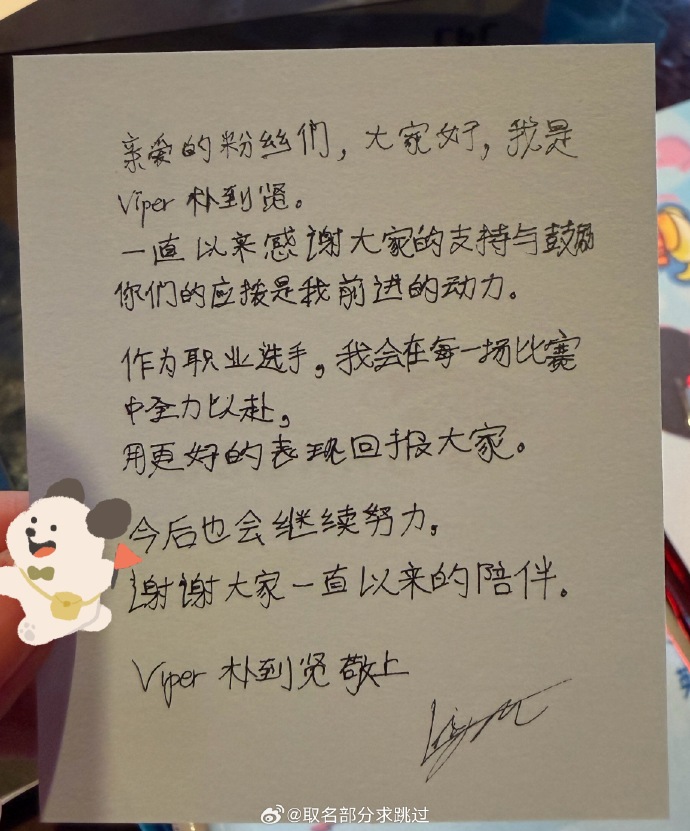 亲爱的粉丝们，大家好，我是
Viper 朴到贤。
一直以来感谢大家的支持与鼓励
你们的应援是我前进的动力。
作为职业选手，我会在每一场比赛
中全力以赴，
用更好的表现回报大家。
今后也会继续努力，
谢谢大家一直以来的陪伴。
Viper 朴到贤敬上
@取名部分求跳过